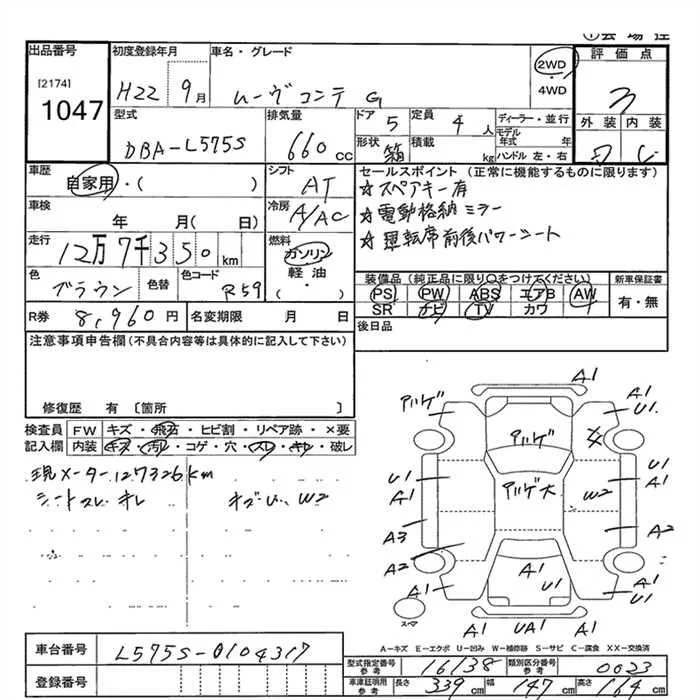 ①会場控
出品番号
[2174]
1047
初度登録年月
H22 9月
車名・グレード
ムーヴコンテ G
2WD
・
4WD
評価点
3
型式
DBA-L575S
排気量
660cc
ドア 5
定員 4人
形状 箱
積載 kg
ディーラー・並行
モデル年式 年
ハンドル 左・右
外装 内装
車歴
自家用・( )
シフト
AT
車検
年 月( 日)
冷房
A/AC
走行
12万7千350km
燃料
ガソリン
軽油
( ・ )
色
ブラウン
色替
色コード
R59
R券 8,960円
名変期限 月 日
セールスポイント(正常に機能するものに限ります)
☆スペアキー有
☆電動格納ミラー
☆運転席前後パワーシート
装備品(純正品に限り○をつけてください)
PS PW ABS エアB AW
SR ナビ TV カワ
新車保証書
有・無
後日品
注意事項申告欄(不具合内容等は具体的に記入して下さい)
修復歴 有〔箇所 〕
検査員記入欄
FW キズ・飛石・ヒビ割・リペア跡・×要
内装 キズ・汚レ・コゲ・穴・スレ・キレ・破レ
現メーター127326km
シートスレ、キレ
W2
アルゲ
A1
A1
U1
アルゲ
アルゲ大
U1
A1
U1
A1
W2
A3
A2
A2
A1
A1
U1
A1
U1
A1
UA1
A1
スペア
A-キズ E-エクボ U-凹み W-補修跡 S-サビ C-腐食 XX-交換済
車台番号
L575S-0104317
登録番号
型式指定番号 参考
16138
類別区分番号 参考
0023
車庫証明用 参考
長さ 339cm
幅 147cm
高さ 164cm